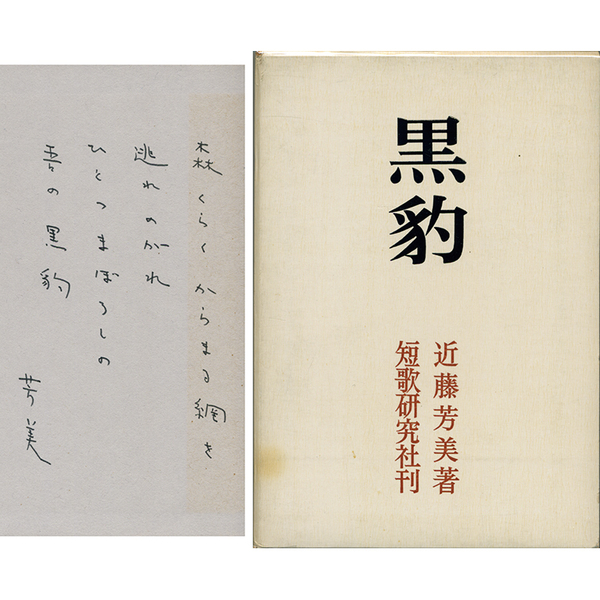 森くらくからまる網を
逃れのがれ
ひとつまぼろしの
吾の黒豹
芳美
黒豹
近藤芳美著
短歌研究社刊